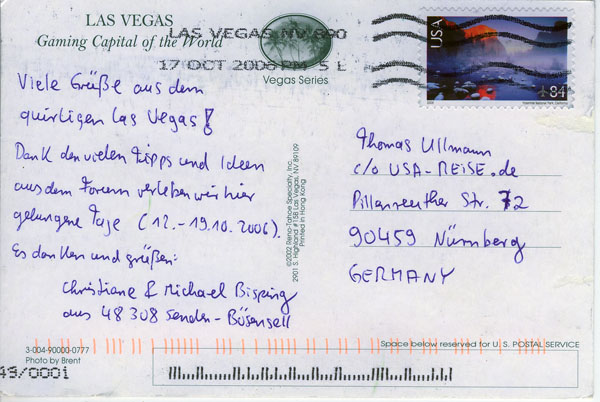 LAS VEGAS
Gaming Capital of the World
Vegas Series
LAS VEGAS NV 890
17 OCT 2006 PM 5 L
USA
84
Viele Grüße aus dem
quirligen Las Vegas!
Dank den vielen Tipps und Ideen
aus dem Forum verleben wir hier
gelungene Tage (12.-19.10.2006).
Es danken und grüßen:
Christiane & Michael Bisping
aus 48308 Senden-Bösensell
©2002 Reno-Tahoe Specialty, Inc.
2901 S. Highland #15B Las Vegas, NV 89109
Printed in Hong Kong
Thomas Ullmann
c/o USA-REISE.de
Pillenreuther Str. 72
90459 Nürnberg
GERMANY
3-004-90000-0777
Photo by Brent
Space below reserved for U.S. POSTAL SERVICE
49/0001